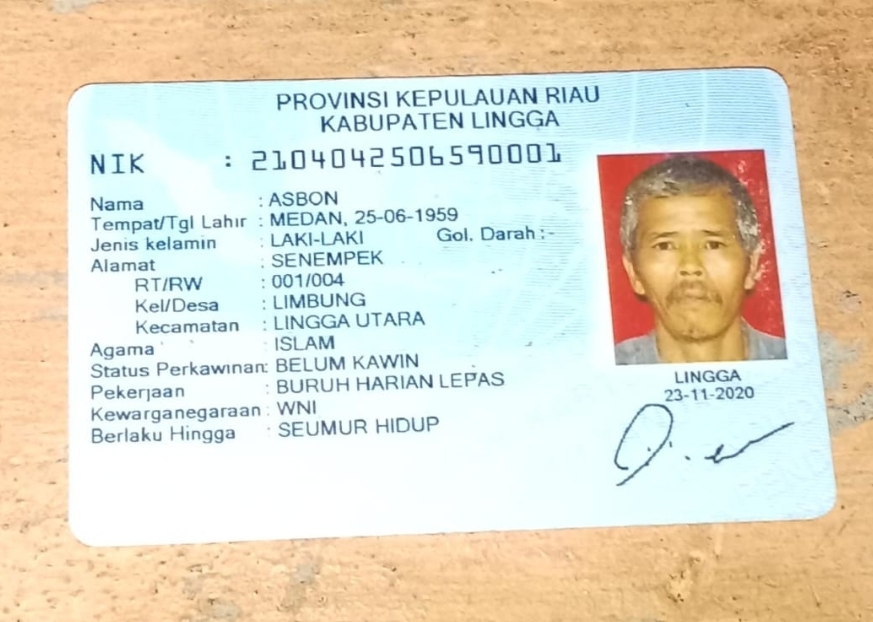 PROVINSI KEPULAUAN RIAU
KABUPATEN LINGGA
NIK : 2104042506590001
Nama : ASBON
Tempat/Tgl Lahir : MEDAN, 25-06-1959
Jenis kelamin : LAKI-LAKI Gol. Darah :-
Alamat : SENEMPEK
RT/RW : 001/004
Kel/Desa : LIMBUNG
Kecamatan : LINGGA UTARA
Agama : ISLAM
Status Perkawinan: BELUM KAWIN
Pekerjaan : BURUH HARIAN LEPAS
Kewarganegaraan : WNI
Berlaku Hingga : SEUMUR HIDUP
LINGGA
23-11-2020